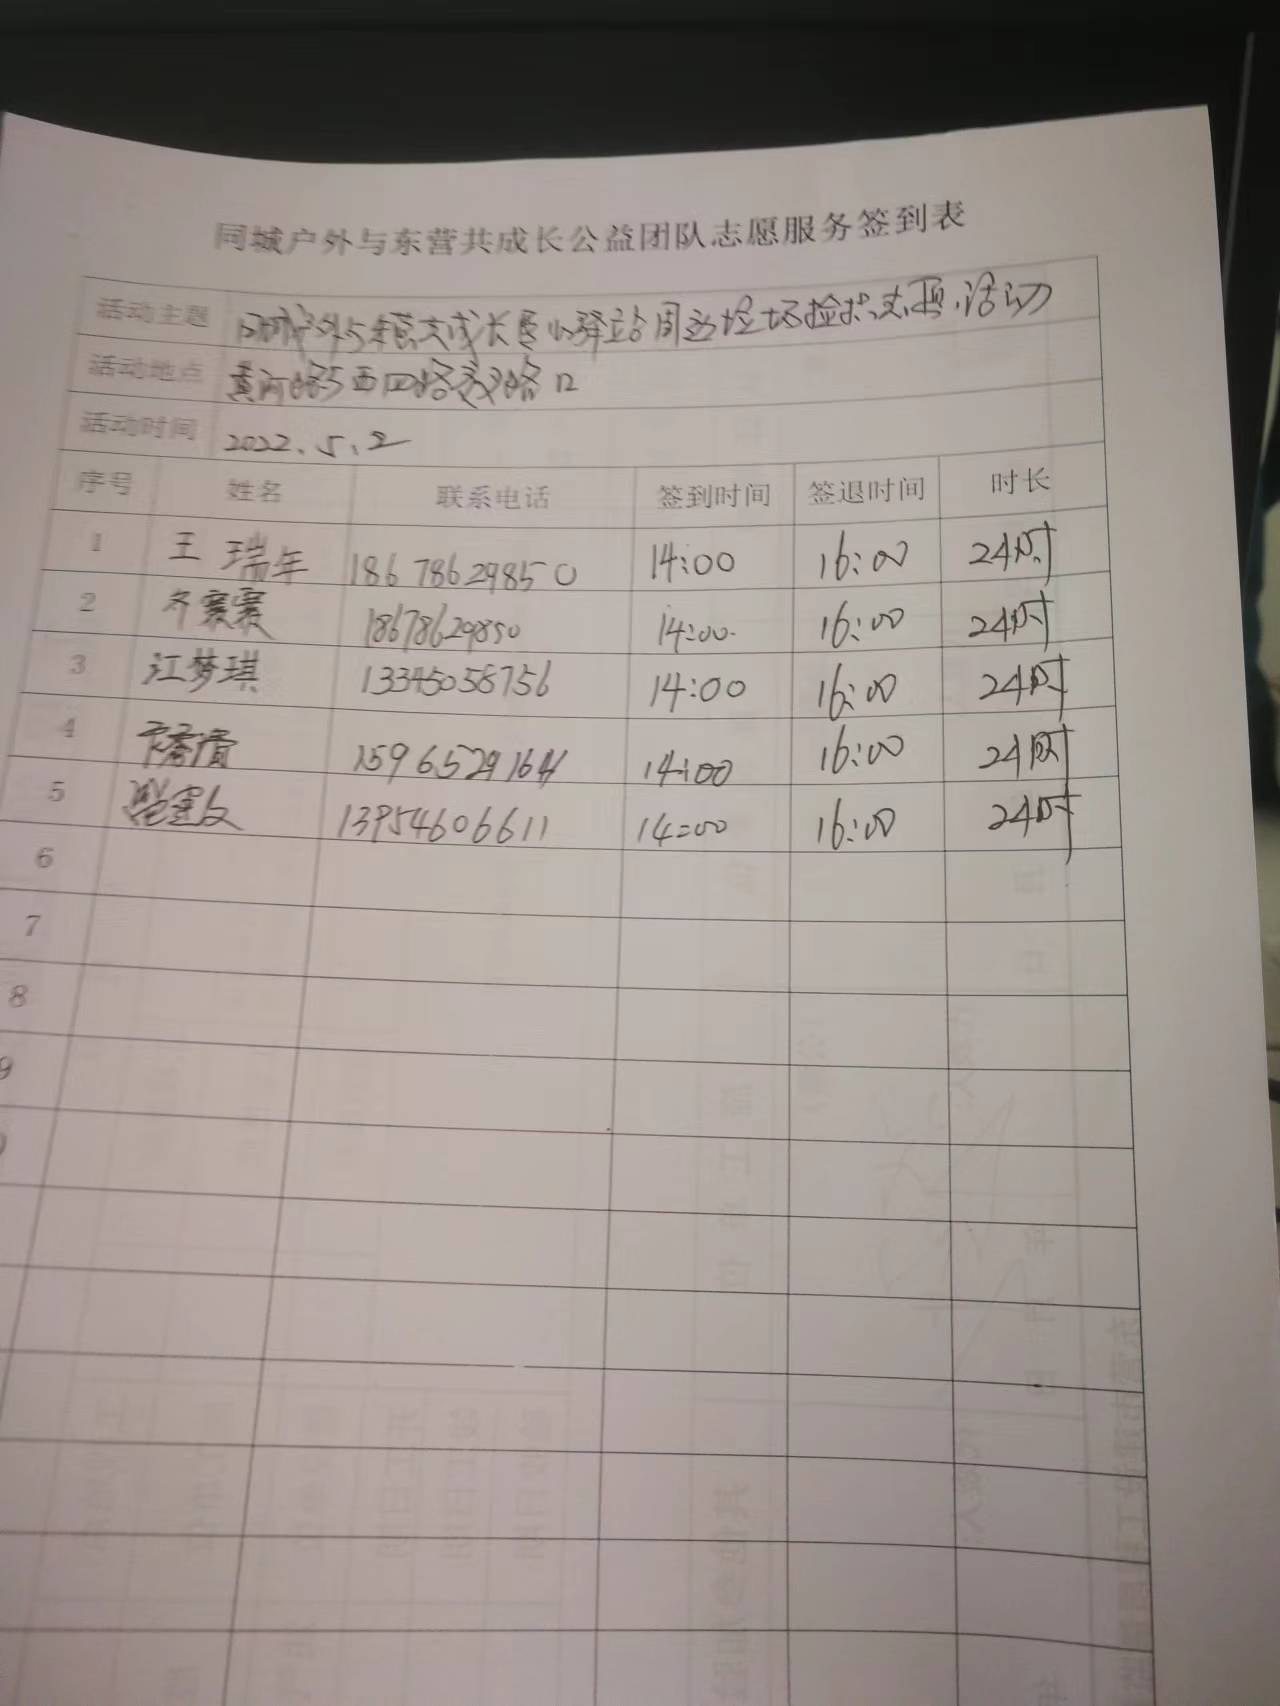 同城户外与东营共成长公益团队志愿服务签到表
活动主题 同城户外与东营共成长 驿站周边垃圾捡拾 活动
活动地点 黄河路与西四路交叉路口
活动时间 2022.5.2
序号 姓名 联系电话 签到时间 签退时间 时长
1 王瑞年 18678629850 14:00 16:00 2小时
2 齐赛赛 18678629850 14:00 16:00 2小时
3 江梦琪 13345058756 14:00 16:00 2小时
4 14:00 16:00 2小时
5 13954606611 14:00 16:00 2小时
6
7
8
9